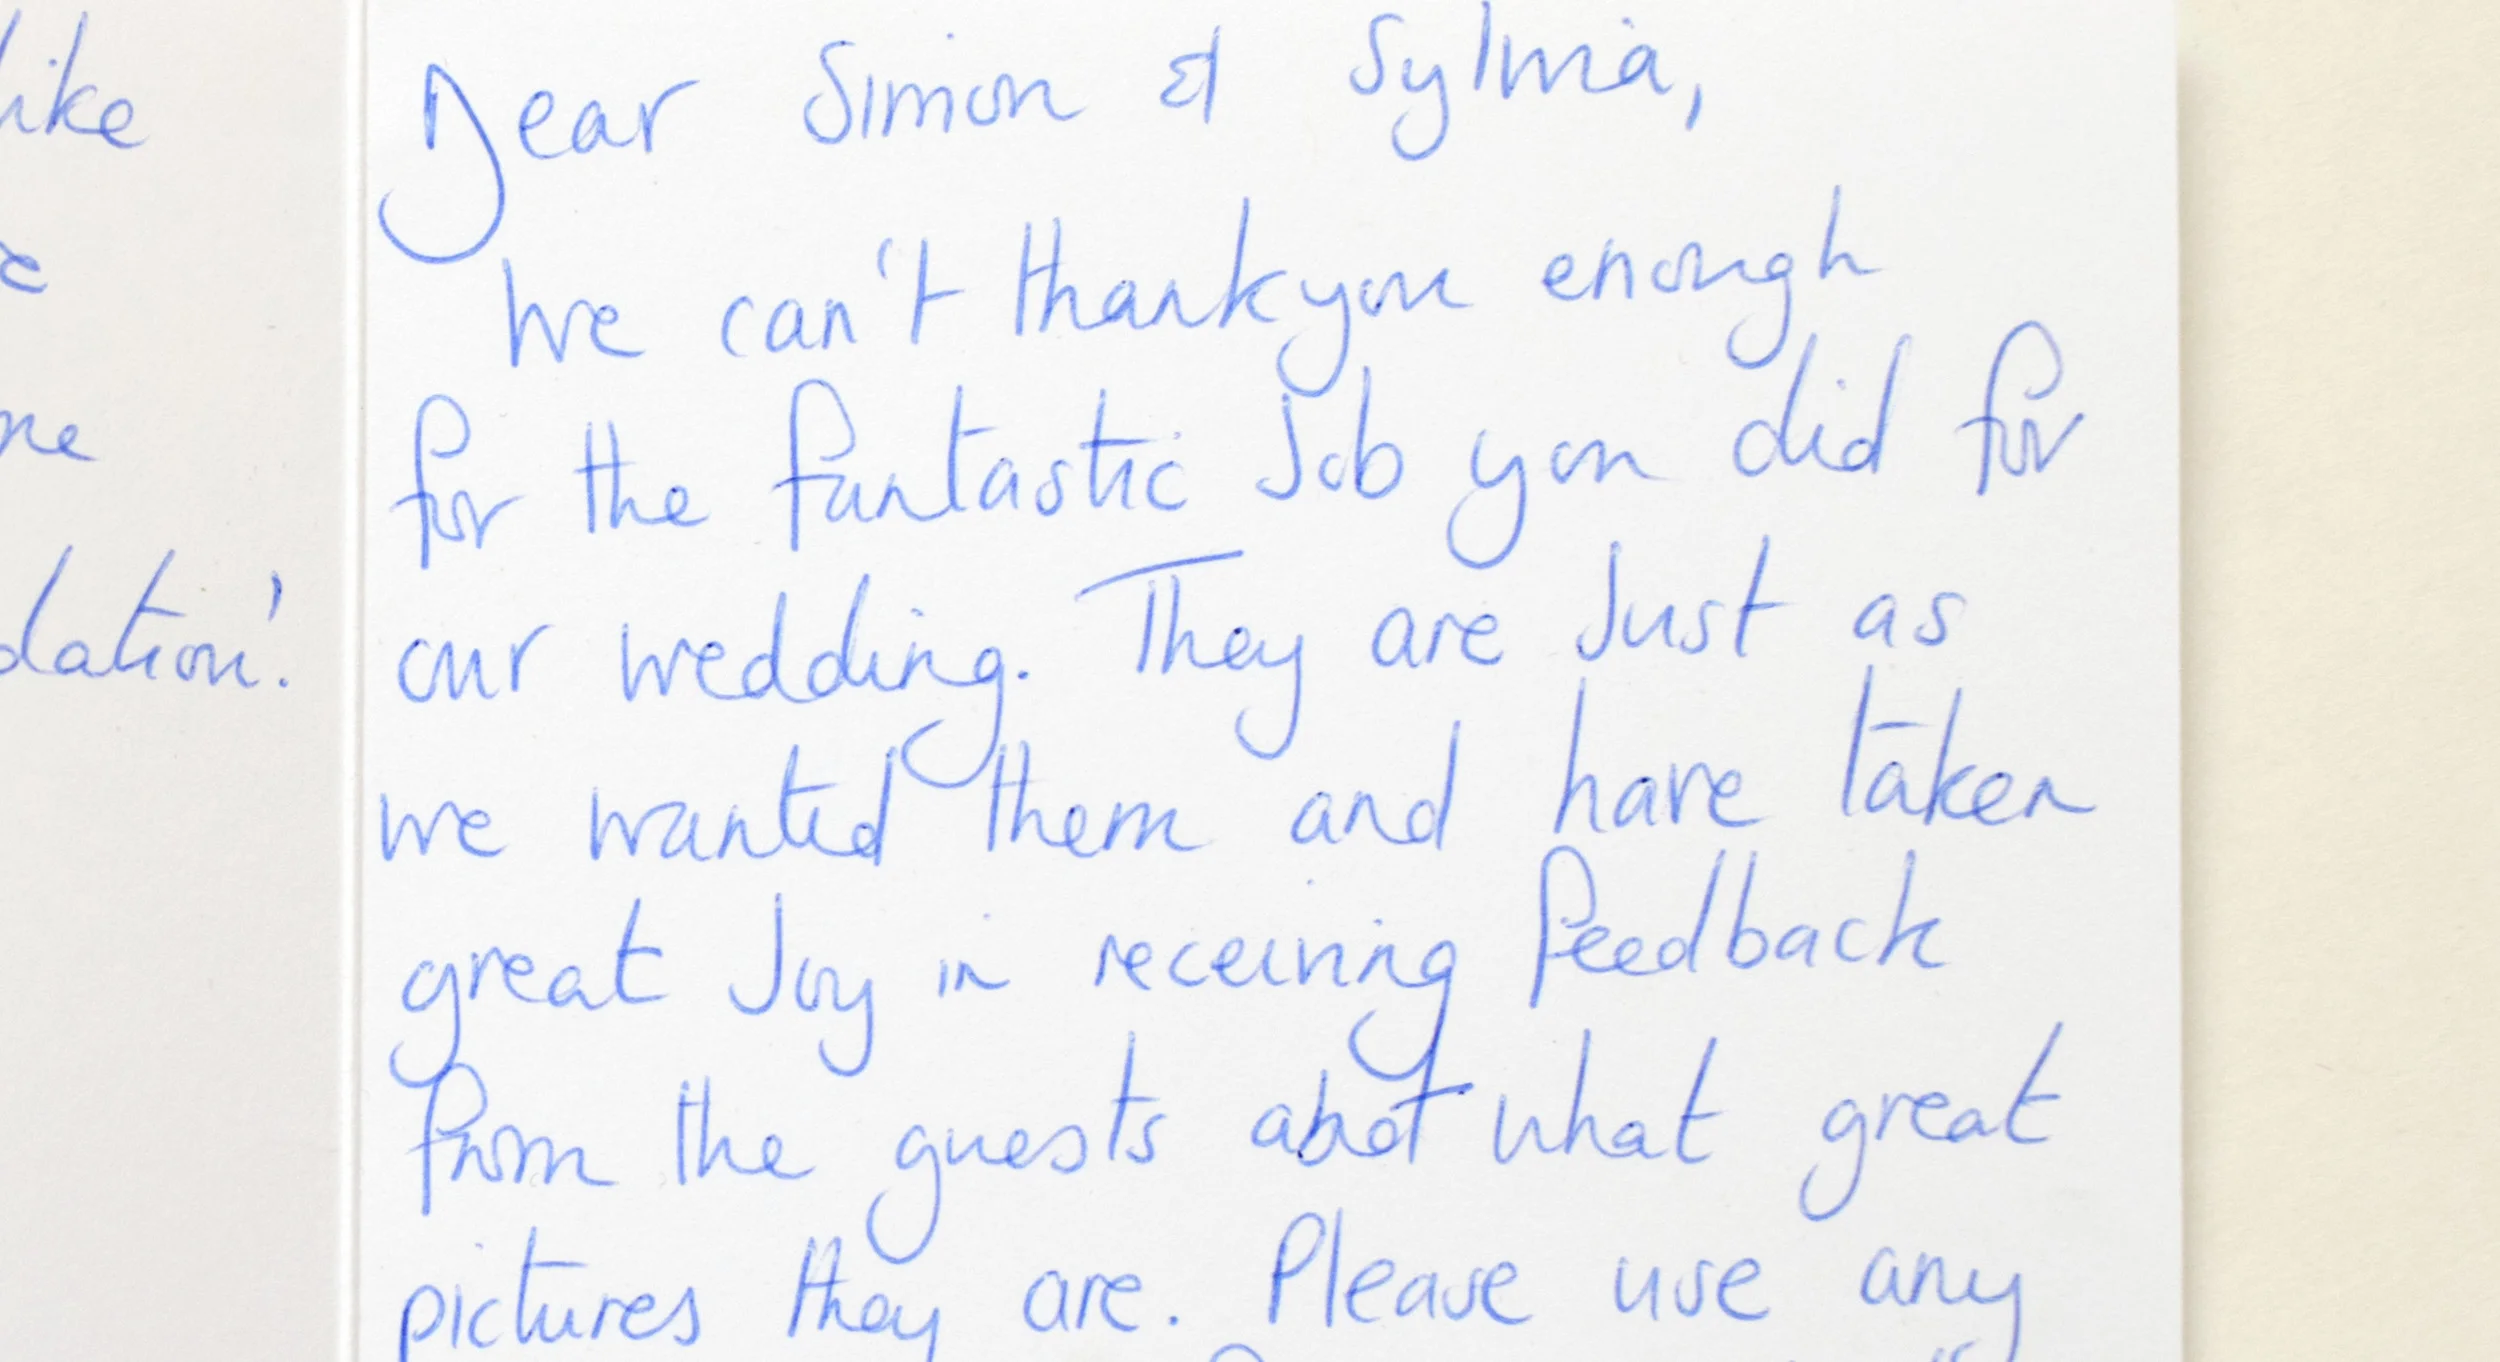 like
ne
dation!
Dear Simon & Sylvia,
We can't thankyou enough
for the fantastic Job you did for
our wedding. They are Just as
we wanted them and have taken
great Joy in receiving feedback
from the guests abot what great
pictures they are. Please use any